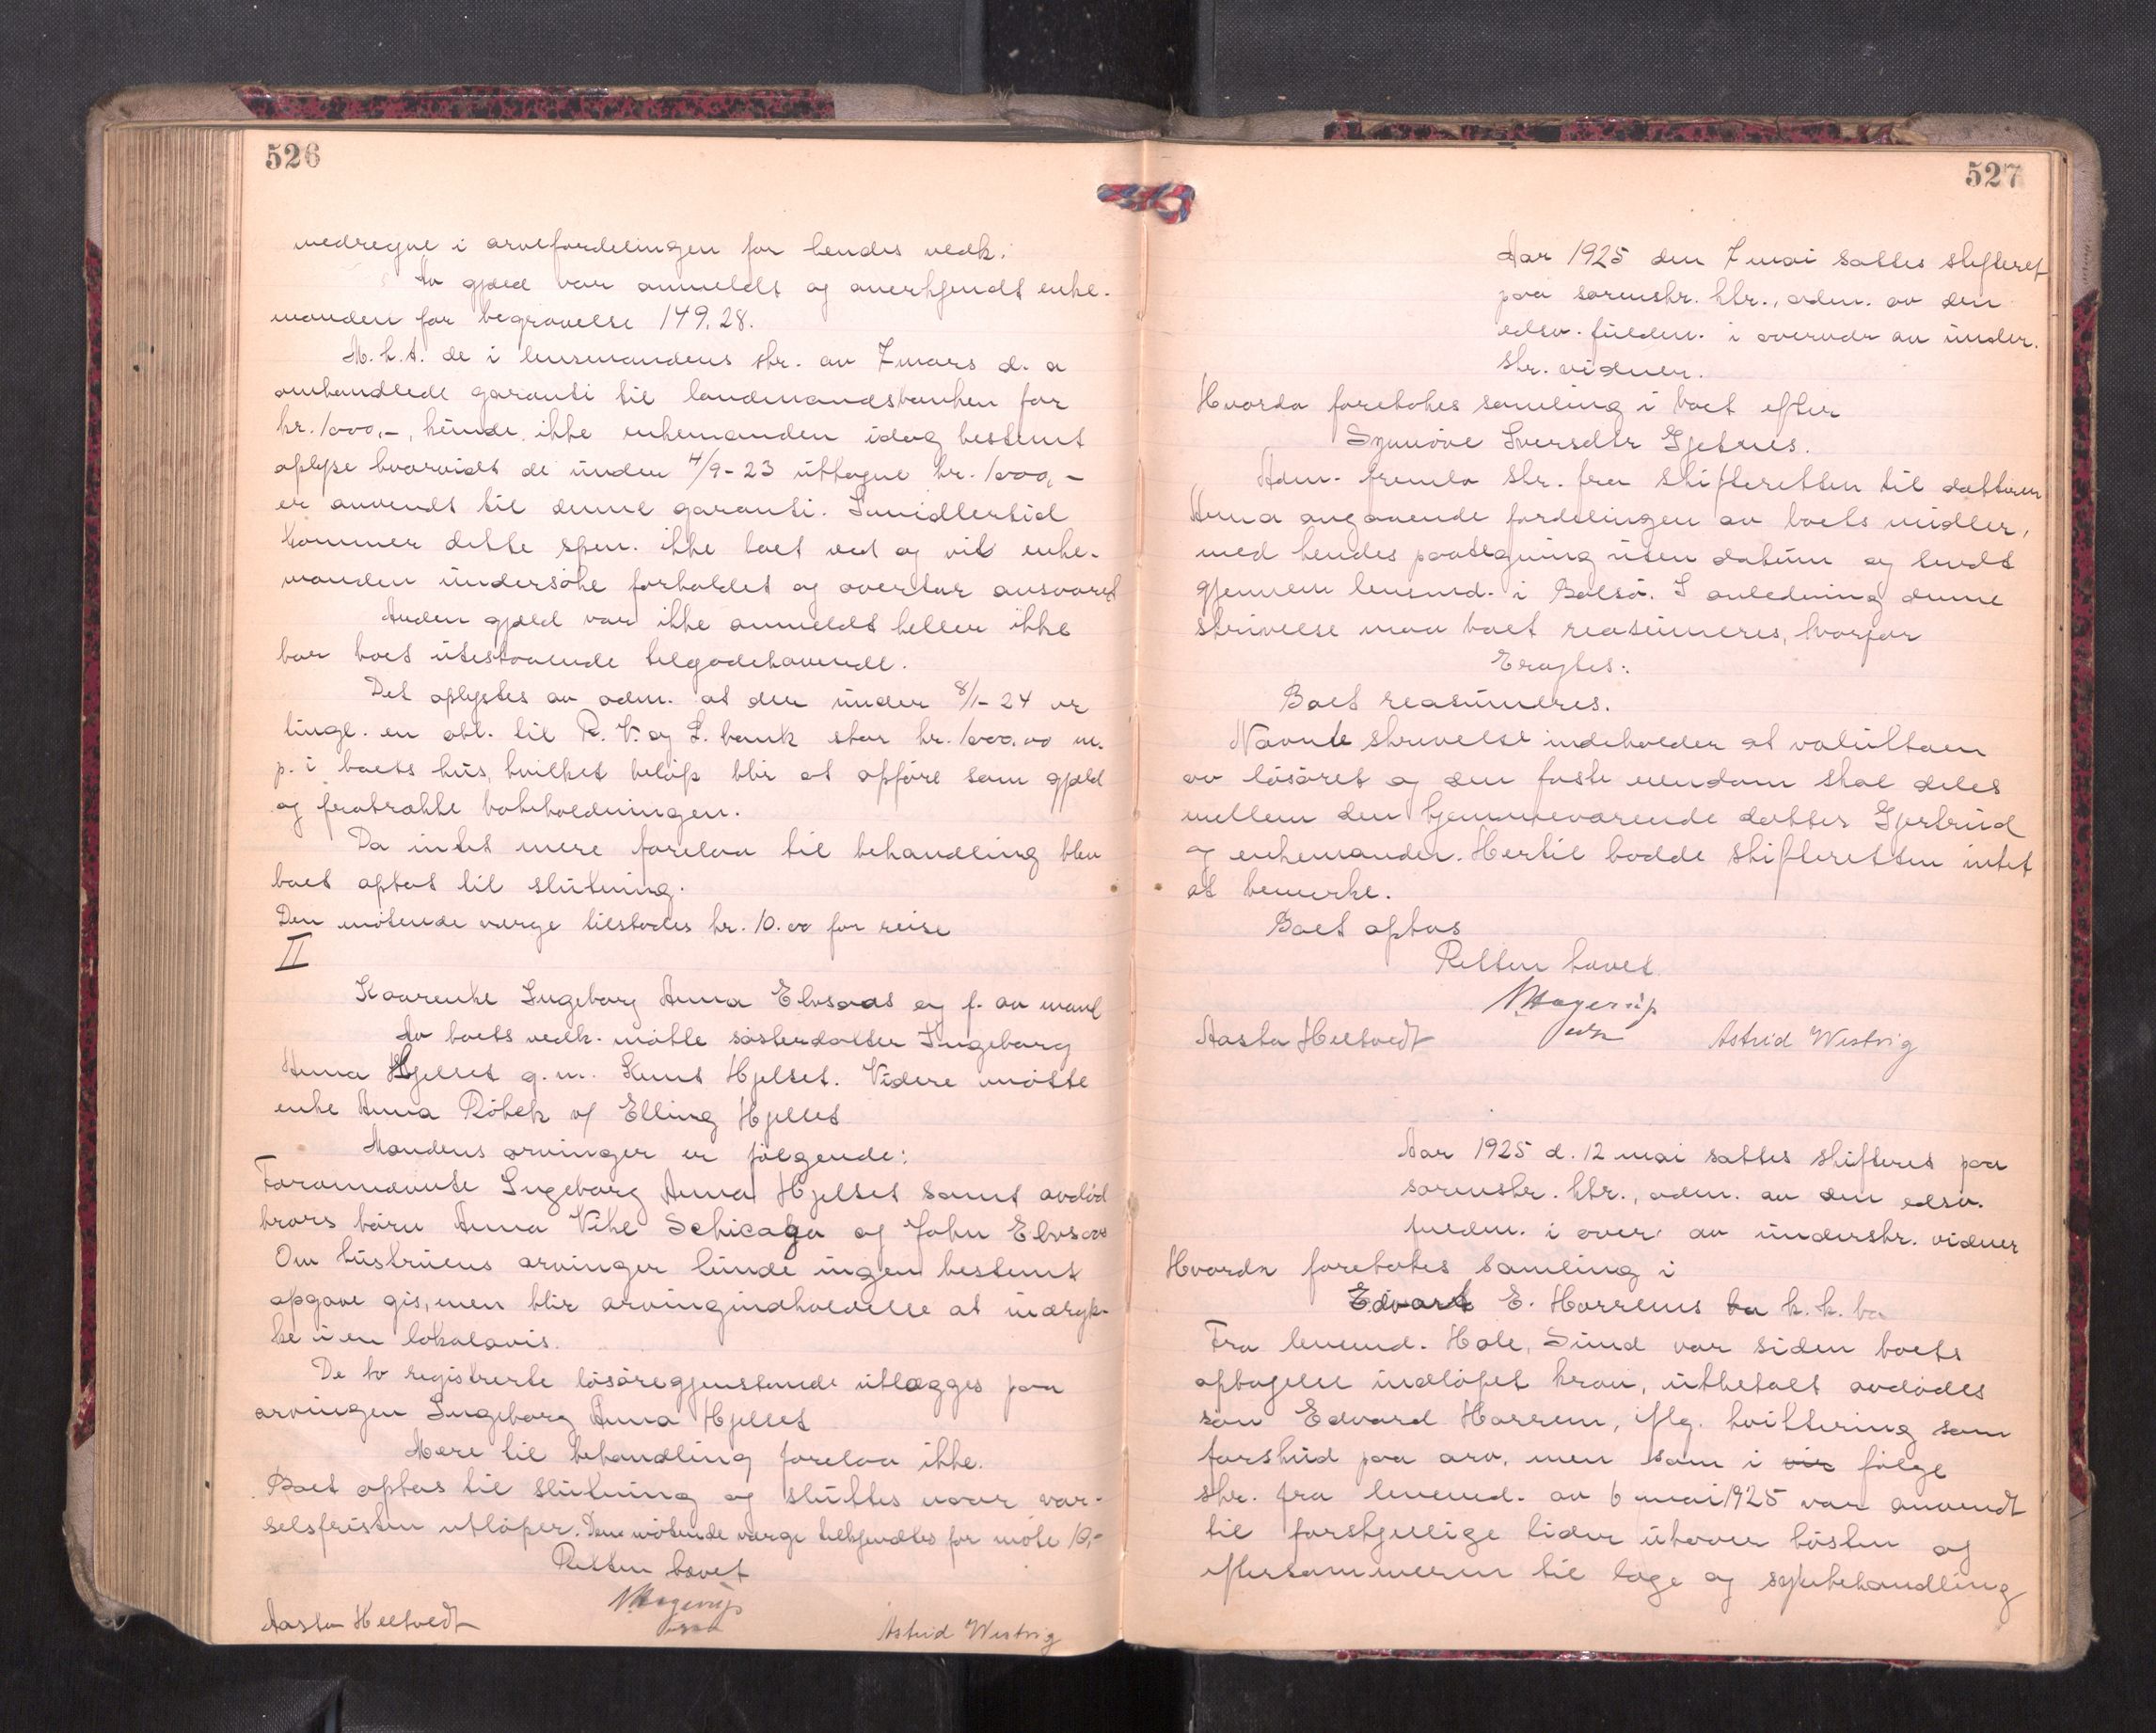 526
medregne i arvefordelingen for hendes vedk.
Av gjæld var anmeldt og anerkjendt enke-
manden for begravelse 149.28.
M.h.t. de i lensmandens skr. av 7 mars d. a
omhandlede garanti til landmandsbanken for
kr. 1000,-, kunde ikke enkemanden idag bestemt
oplyse hvorvidt de under 4/9-23 uttagne kr. 1000,-
er anvendt til denne garanti. Imidlertid
kommer dette spm. ikke boet ved og vil enke-
manden undersøke forholdet og overtar ansvaret
Anden gjæld var ikke anmeldt heller ikke
har boet utestaaende tilgodehavende.
Det oplystes av adm. at der under 8/1-24 er
tingl. en obl. til R. V. og L. bank stor kr. 1000.00 m.
p. i boets hus, hvilket beløp blir at opføre som gjæld
og fratrække bobeholdningen.
Da intet mere forelaa til behandling blev
boet optat til slutning.
Den møtende verge tilstodes kr. 10.00 for reise
II
Kaarenke Ingeborg Anna Elvsaas og f. av mand
Av boets vedk. møtte søsterdatter Ingeborg
Anna Hjelset g.m. Knut Hjelset. Videre møtte
enke Anna Röbek v/ Elling Hjelset
Mandens arvinger er følgende:
Forannævnte Ingeborg Anna Hjelset samt avdød
brors børn Anna Vike Schicago og John Elvsaas
Om hustruens arvinger kunde ingen bestemt
opgave gis, men blir arvingindkaldelse at indryk-
ke i en lokalavis.
De to registrerte løsøregjenstande utlægges paa
arvingen Ingeborg Anna Hjelset
Mere til behandling forelaa ikke.
Boet optas til slutning og sluttes naar var-
selsfristen utløper. Den møtende verge tilkjendtes for møte 10,-
Retten hævet
N. Hagerup
Aasta Heltvedt
Astrid Westvig
527
Aar 1925 den 7 mai sattes skifteret
paa sorenskr. ktr., adm. av den
edsv. fuldm. i overvær av under-
skr. vidner.
Hvorda foretokes samling i boet efter
Synnöve Iversdtr Gjetnes.
Adm. fremla skr. fra skifteretten til datteren
Anna angaaende fordelingen av boets midler,
med hendes paategning uten datum og sendt
gjennem lensmd. i Bolsø. I anledning denne
skrivelse maa boet reasumeres, hvorfor
Eragtes:
Boet reasumeres.
Nævnte skrivelse indeholder at valuttaen
av løsøret og den faste eiendom skal deles
mellem den hjemmeværende datter Gjertrud
og enkemanden. Hertil hadde skifteretten intet
at bemerke.
Boet optas
Retten hævet.
N. Hagerup
Aasta Heltvedt
Astrid Westvig
Aar 1925 d. 12 mai sattes skifteret paa
sorenskr. ktr., adm. av den edsv.
fuldm. i over. av underskr. vidner
Hvorda foretokes samling i
Edvard E. Harrems ba k. k. bo
Fra lensmd. Hole, Sund var siden boets
optagelse indløpet kray, utbetalt avdødes
søn Edvard Harrem, iflg. kvittering som
forskud paa arv, men som i følge
skr. fra lensmd. av 6 mai 1925 var anvendt
til forskjellige tider utover høsten og
eftersommeren til læge og sykebehandling